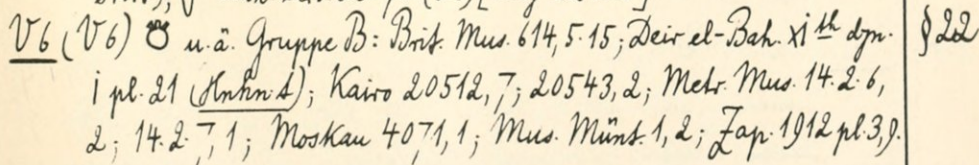 V6 (V6) 𓎱 u. ä. Gruppe B: Brit. Mus. 614, 5. 15; Deir el-Bah. XIth dyn. § 22
I pl. 21 (Hnhn.t); Kairo 20512, 7; 20543, 2; Metr. Mus. 14. 2. 6,
2; 14. 2. 7, 1; Moskau 4071, 1; Mus. Münt. 1, 2; Zap. 1912 pl. 3, 9.